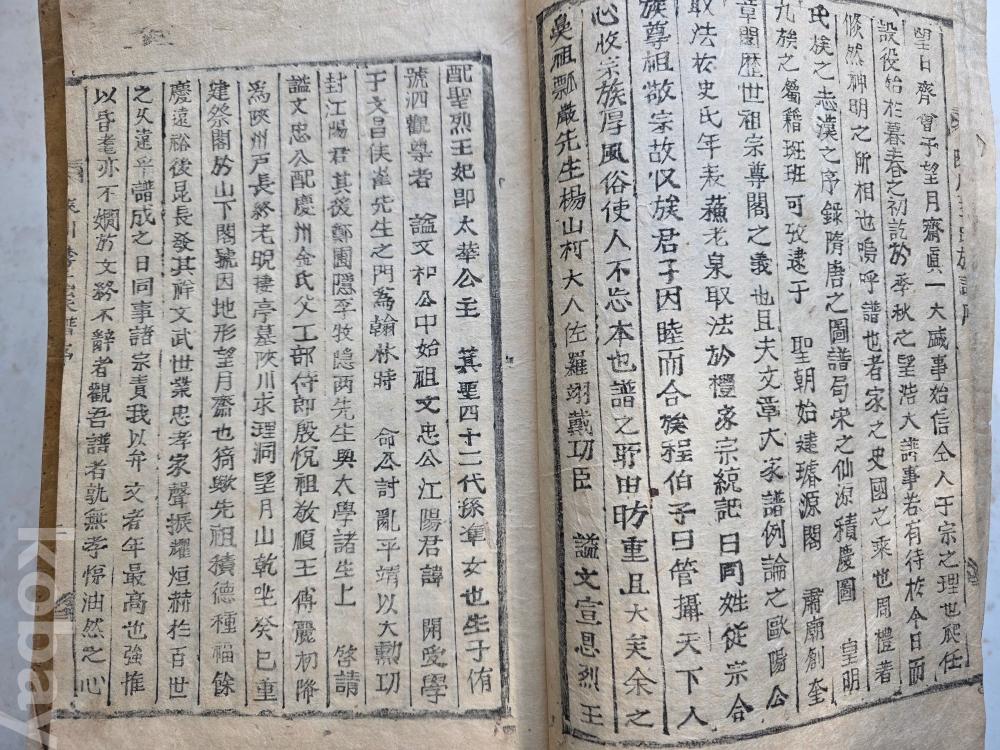 望日齊會于望月齋眞一大盛事始信仝人于宗之理也爬任
設役始於暮春之初訖於季秋之望浩大譜事若有待於今日而
倐然神明之所相也嗚呼譜也者家之史國之乘也周禮著
氏族之志漢之序錄隋唐之圖譜局宋之仙源積慶圖 皇明
九族之屬籍班班可攷逮于 聖朝始建璿源閣 肅廟創奎
章閣歷世祖宗尊閣之義也且夫文章大家譜例論之歐陽公
取法於史氏年表蘓老泉取法於禮家宗統記曰同姓從宗合
族尊祖敬宗故収族君子因睦而合族程伯子曰管攝天下人
心收宗族厚風俗使人不忘本也譜之所由昉重且大矣余之
鼻祖瓢巖先生楊山柯大人佐羅翊戴功臣 謚文宣恩烈王
配聖烈王妃即太華公主 箕聖四十二代孫準女也生子侑
號泗觀尊者 謚文和公中始祖文忠公江陽君諱 開愛學
于文昌侯崔先生之門爲翰林時 命公討亂平靖以大勳功
封江陽君其後鄭圃隱李牧隱两先生與太學諸生上 啓請
謚文忠公配慶州金氏父工部侍郎殷悅祖敬順王傅麗初降
爲陜州戶長終老晛棲亭墓陜川求理洞望月山乾坐癸巳重
建祭閣於山下閣號因地形望月齋也猗歟先祖積德種福餘
慶遠裕後昆長發其祥文武世業忠孝家聲振耀烜赫於百世
之久遠乎譜成之日同事諸宗責我以弁 文者年最高也強惟
以昏耄亦不嫺於文終不辭者觀吾譜者孰無孝悌油然之心
kobay